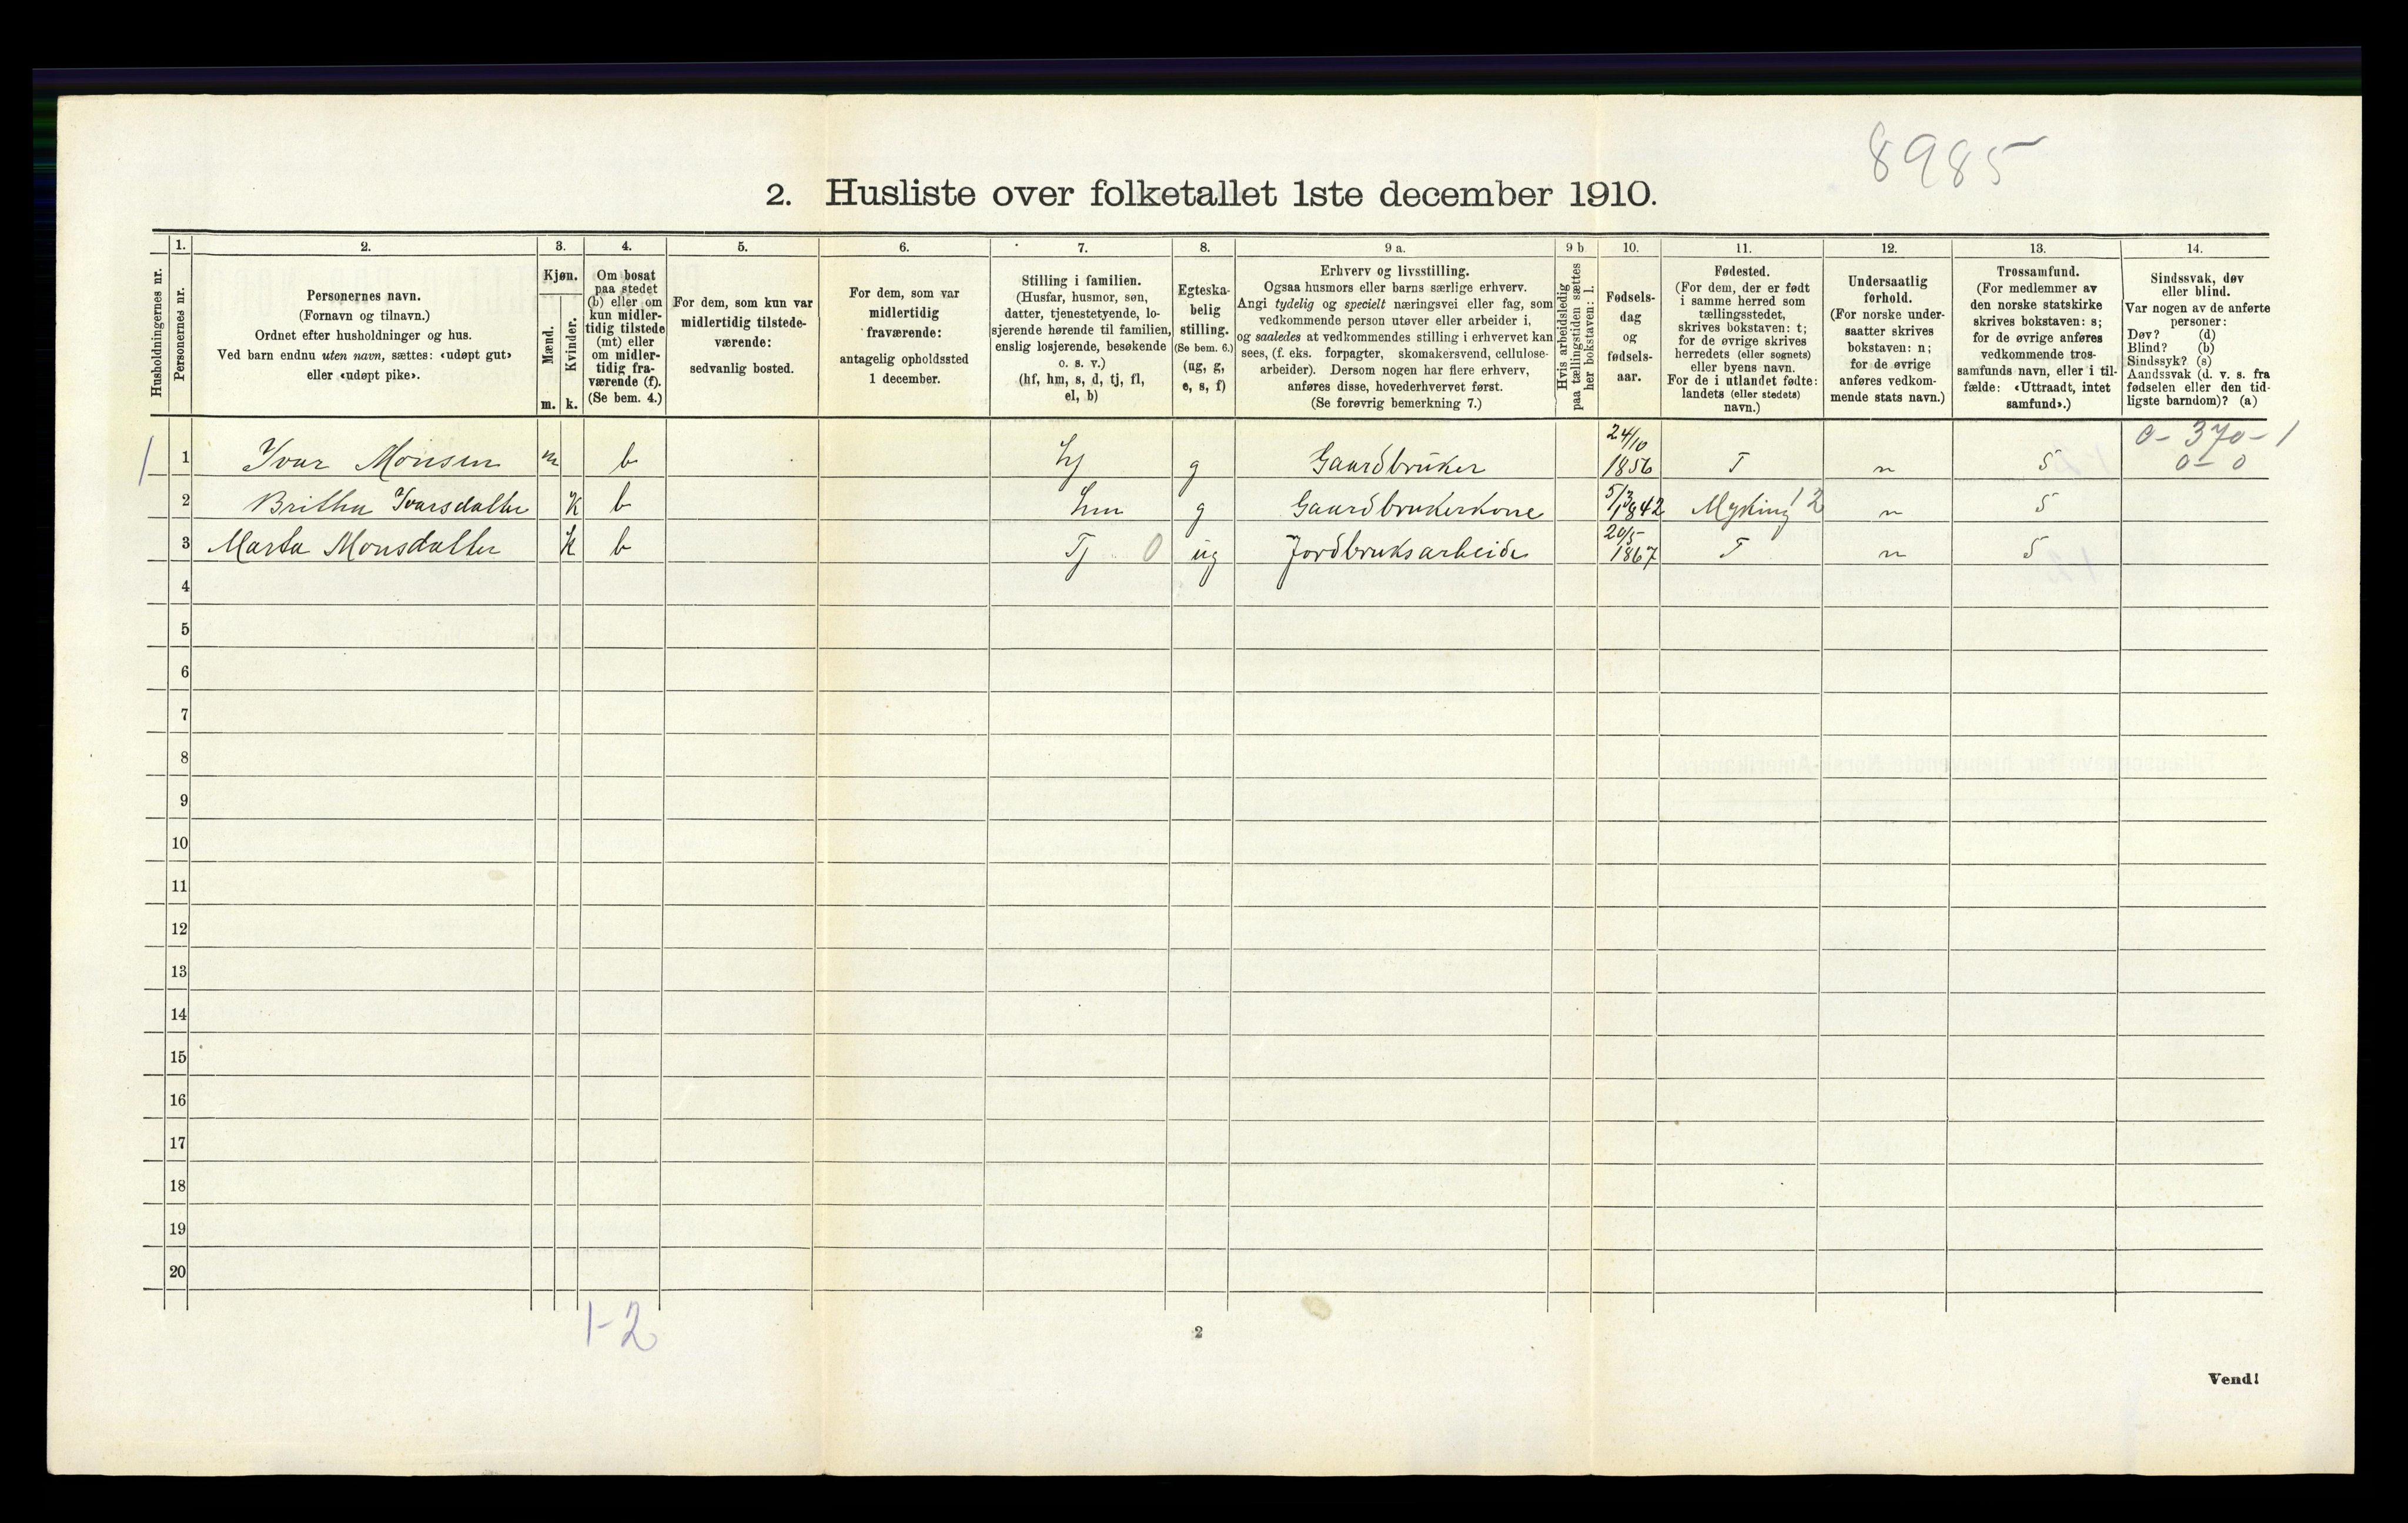 8985
2. Husliste over folketallet 1ste december 1910.
1. 2. 3. 4. 5. 6. 7. 8. 9 a. 9 b 10. 11. 12. 13. 14.
Husholdningernes nr.
Personernes nr.
Personernes navn.
(Fornavn og tilnavn.)
Ordnet efter husholdninger og hus.
Ved barn endnu uten navn, sættes: «udøpt gut»
eller «udøpt pike».
Kjøn.
Mænd.
Kvinder.
m. k.
Om bosat
paa stedet
(b) eller om
kun midler-
tidig tilstede
(mt) eller
om midler-
tidig fra-
værende (f).
(Se bem. 4.)
For dem, som kun var
midlertidig tilstede-
værende:
sedvanlig bosted.
For dem, som var
midlertidig
fraværende:
antagelig opholdssted
1 december.
Stilling i familien.
(Husfar, husmor, søn,
datter, tjenestetyende, lo-
sjerende hørende til familien,
enslig losjerende, besøkende
o. s. v.)
(hf, hm, s, d, tj, fl,
el, b)
Egteska-
belig
stilling.
(Se bem. 6.)
(ug, g,
e, s, f)
Erhverv og livsstilling.
Ogsaa husmors eller barns særlige erhverv.
Angi tydelig og specielt næringsvei eller fag, som
vedkommende person utøver eller arbeider i,
og saaledes at vedkommendes stilling i erhvervet kan
sees, (f. eks. forpagter, skomakersvend, cellulose-
arbeider). Dersom nogen har flere erhverv,
anføres disse, hovederhvervet først.
(Se forøvrig bemerkning 7.)
Hvis arbeidsledig
paa tællingstiden sættes
her bokstaven: l.
Fødsels-
dag
og
fødsels-
aar.
Fødested.
(For dem, der er født
i samme herred som
tællingsstedet,
skrives bokstaven: t;
for de øvrige skrives
herredets (eller sognets)
eller byens navn.
For de i utlandet fødte:
landets (eller stedets)
navn.)
Undersaatlig
forhold.
(For norske under-
saatter skrives
bokstaven: n;
for de øvrige
anføres vedkom-
mende stats navn.)
Trossamfund.
(For medlemmer av
den norske statskirke
skrives bokstaven: s;
for de øvrige anføres
vedkommende tros-
samfunds navn, eller i til-
fælde: «Uttraadt, intet
samfund».)
Sindssvak, døv
eller blind.
Var nogen av de anførte
personer:
Døv? (d)
Blind? (b)
Sindssyk? (s)
Aandssvak (d. v. s. fra
fødselen eller den tid-
ligste barndom)? (a)
1 1 Ivar Monsen m b hf g Gaardbruker 24/10 1856 T n S 0-370-1 0-0
2 Britha Ivarsdatter k b hm g Gaardbrukerkone 5/3 1842 Myking 12 n S
3 Marta Monsdatter k b Tj 0 ug Jordbruksarbeide 20/5 1867 T n S
4
5
6
7
8
9
10
11
12
13
14
15
16
17
18
19
20
1-2
2
Vend!